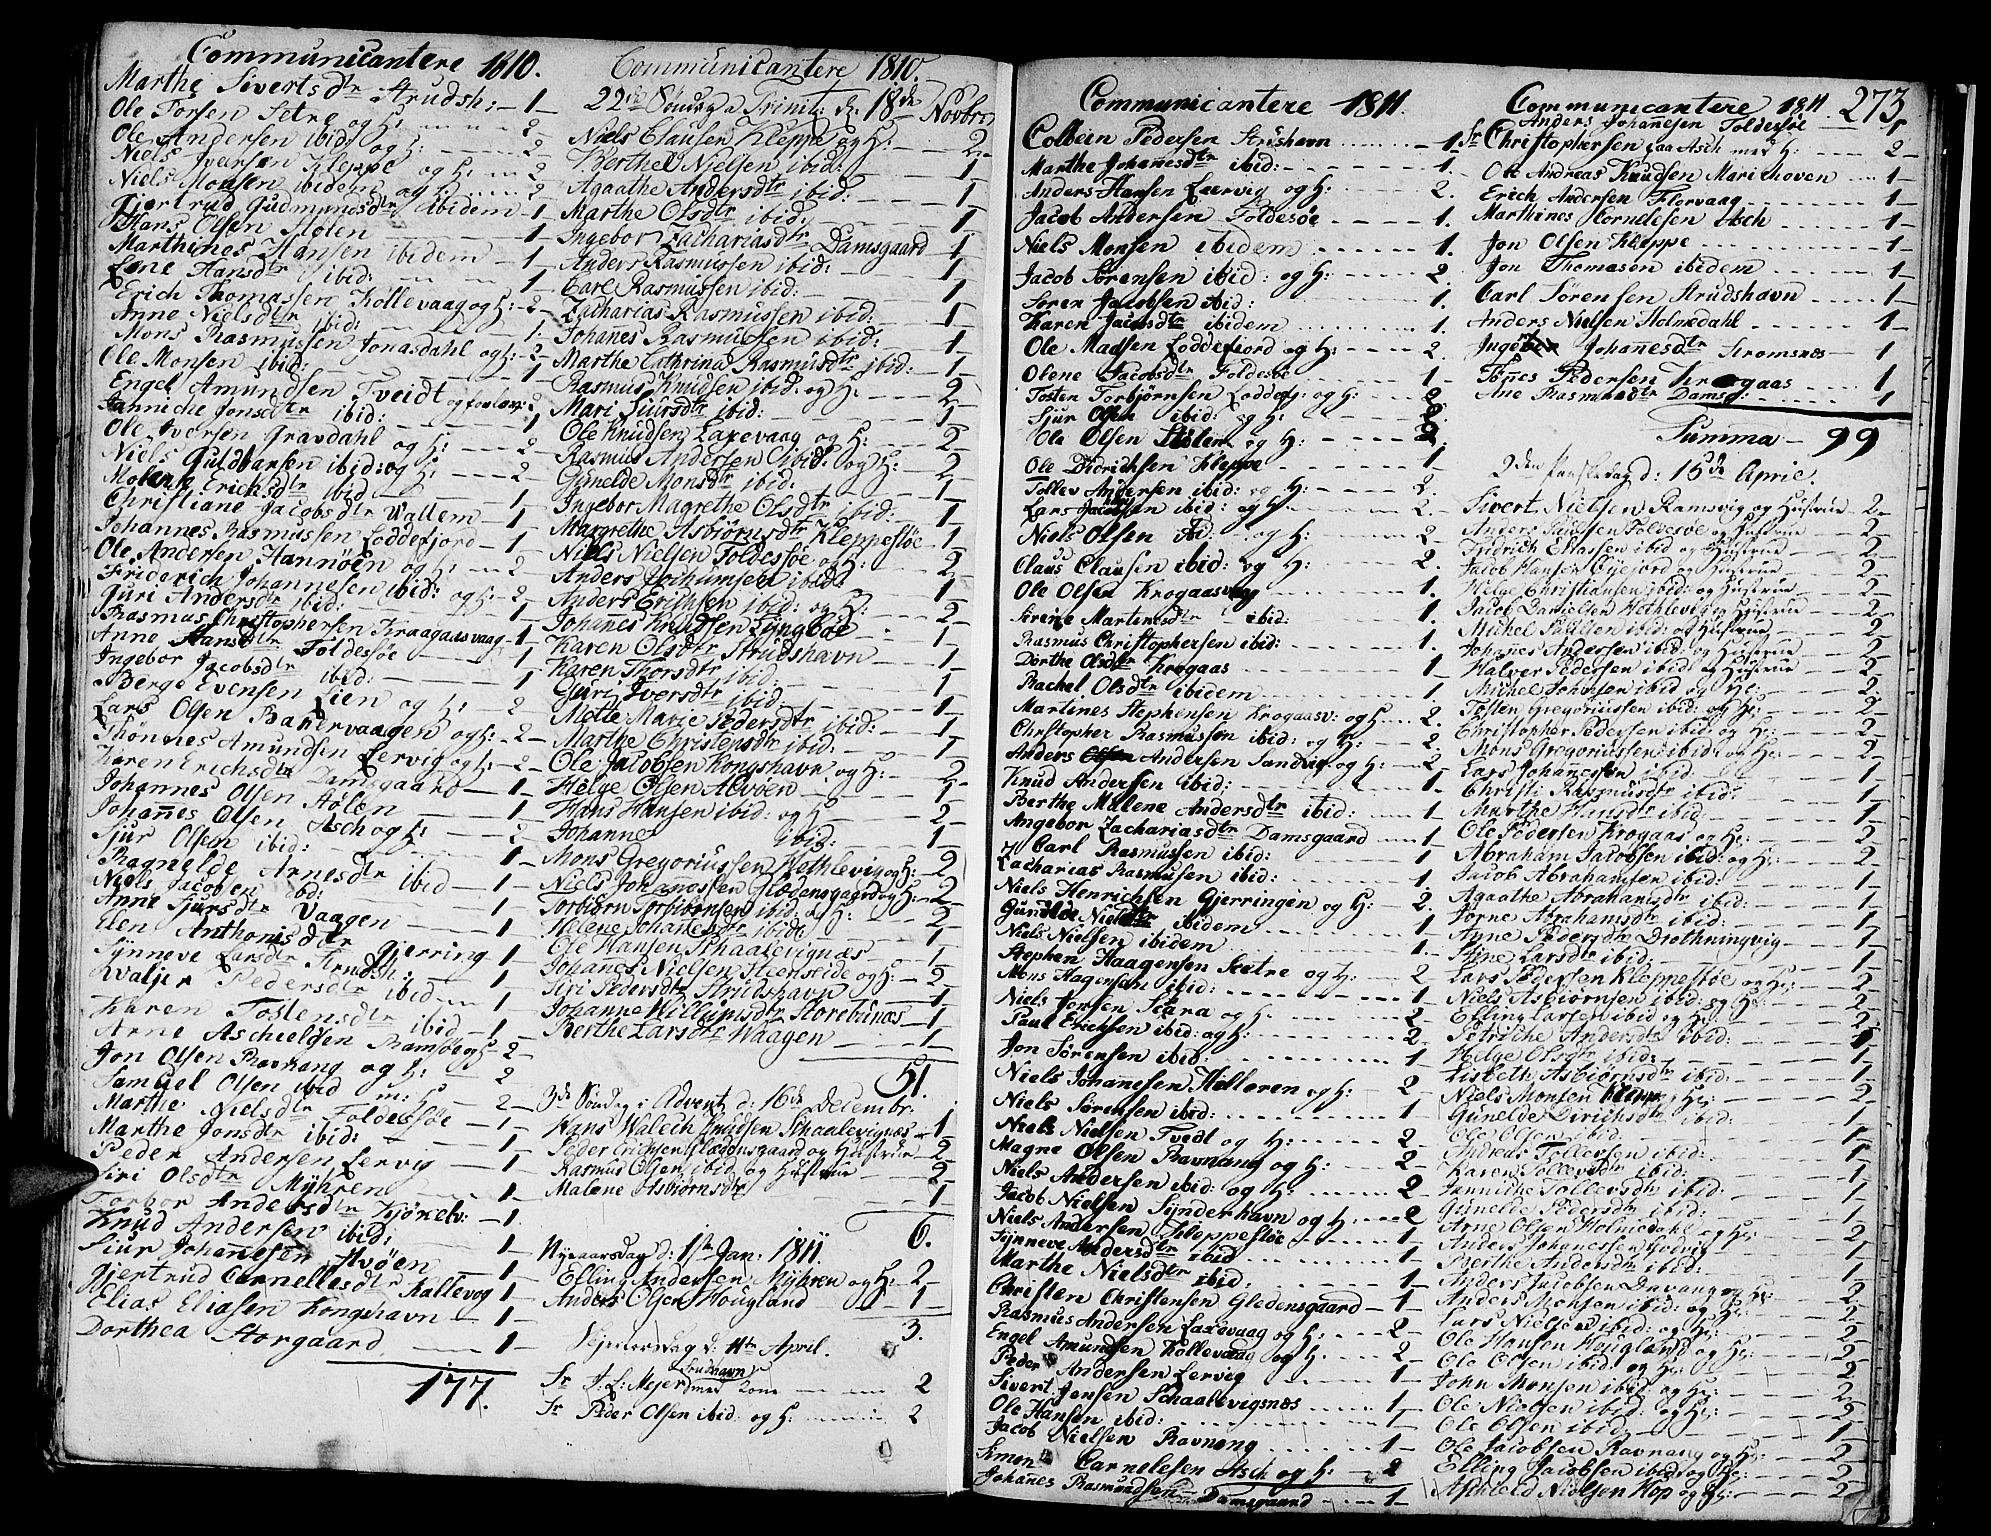 Communicantere 1810.
Marthe Sivertsdtr Strudsh: 1
Ole Torsen Setre og H: 2
Ole Andersen ibid: og H: 2
Niels Iversen Kleppe og H: 2
Niels Monsen ibidem og H: 2
Giertrud Gudmundsdtr ibidem 1
Hans Olsen Stølen 1
Marthines Hansen ibidem 1
Lene Hansdtr ibid: 1
Erich Thomassen Kollevaag og H: 2
Anne Nielsdtr ibid: 1
Mons Rasmussen Jonasdahl og H: 2
Ole Monsen ibid: 1
Engel Amundsen Tveidt og
Janniche Jonsdtr ibid: 1
Ole Iversen Gravdahl og H: 2
Niels Guldbrandsen ibid: og H: 2
Erichsdtr ibid 1
Christiane Jacobsdtr Wallem 1
Johannes Rasmussen Loddefjord 1
Ole Andersen Hannøen og H: 2
Friderich Johannesen ibid: og H: 2
Guri Andersdtr ibid: 1
Rasmus Christophersen Kraagaasvaag 1
Anne Hansdtr Foldesøe 1
Ingebor Jacobsdtr ibid: 1
Berge Evensen Lien og H: 2
Lars Olsen Bandervaagen og H: 2
Thønnes Amundsen Lervig og H: 2
Karen Erichsdtr Damsgaard 1
Johannes Olsen Stølen 1
Johañes Olsen Asch og H: 2
Sjur Olsen ibid: 1
Ragnelde Arnesdtr ibid 1
Niels Jacobsen ibd: 1
Anne Sjursdtr Vaagen 1
Elen Anthonisdtr Gjerring 1
Synneve Larsdtr Strudsh: 1
Pedersdtr ibid 1
Karen Tostensdtr ibid 1
Arne Aschieldsen Ramsøe og H: 2
Jon Olsen Ravnang og H: 2
Samuel Olsen ibid m: H: 2
Marthe Nielsdtr Foldessøe 1
Marthe Jonsdtr ibid: 1
Peder Andersen Lervig 1
Siri Olsdtr Myhren 1
Torbor Andersdtr Kjøkelv: 1
Knud Andersen ibid: 1
Siur Johanesen Alvøen 1
Gjertrud Cornellesdtr Kallevog 1
Elias Eliasen Kongshavn 1
Dorthea Storgaard 1
177.
Communicantere 1810.
22de Søndag a Trinit: d: 18de Novbr
Niels Clausen Kleppe og H: 2
Berthel Nielsen ibid: 1
Agaathe Andersdtr ibid: 1
Marthe Olsdtr ibid: 1
Ingebor Zachariasdtr Damsgaard 1
Anders Rasmussen ibid: 1
Carl Rasmussen ibid: 1
Zacharias Rasmussen ibid: 1
Johanes Rasmussen ibid: 1
Marthe Cathrina Rasmusdtr ibid: 1
Rasmus Knudsen ibid: og H: 2
Mari Siursdtr ibid: 1
Ole Knudsen Laxevaag og H: 2
Rasmus Andersen ibid: og H: 2
Gunelde Monsdtr ibid: 1
Ingebor Magrethe Olsdtr ibid: 1
Margrethe Asbiørnsdtr Kleppesøe 1
Niels Nielsen Foldesøe og H: 2
Anders Jochumsen ibid: 1
Anders Erichsen ibid: og H: 2
Johanes Knudsen Lyngbøe 1
Karen Olsdtr Strudshavn 1
Karen Thorsdtr ibid: 1
Guri Iversdtr ibid 1
Mette Marie Pedersdtr ibid: 1
Marthe Christensdtr ibid: 1
Ole Jacobsen Kongshavn og H: 2
Helge Olsen Alvøen 1
Hans Hansen ibid: og H 2
Johanne ibid: 1
Mons Gregoriussen Hethlevig og H: 2
Niels Johanessen Glædensgaard og H: 2
Torbiørn Torbiørnsen ibid: og H: 2
Helene Johanesdtr ibid: 1
Ole Hansen Skaalevignæs 1
Johañes Nielsen Steenseide og H: 2
Siri Pedersdtr Strudshavn 1
Johanne Willumsdtr Storebunæs 1
Berthe Larsdtr Waagen 1
51.
3de Søndag i Advent d: 16de Decembr.
Hans Walech Knudsen Skaalevignæs 1
Peder Erichsen Glæddensgaard og Hustrue 2
Rasmus Olsen ibid og Hustrue 2
Malene Asbiørnsdtr 1
6.
Nyeaarsdag d: 1ste Jan: 1811.
Elling Andersen Myhren og H: 2
Anders Olsen Hougland 1
3.
Skjertorsdag d: 11te April.
Strudshavn
Sr J. L: Mejer med Kone 2
Sr Peder Olsen ibid: og H: 2
Communicantere 1811.
Colbein Pedersen Strishavn 1
Marthe Johanesdtr ibid: 1.
Anders Hansen Laervig og H: 2.
Jacob Andersen Foldesøe 1.
Niels Monsen ibidem 1.
Jacob Sørensen ibid: og H: 2.
Søren Jacobsen ibid: 1.
Karen Jacobsdtr ibidem 1.
Ole Madsen Loddefjord og H: 2.
Olene Jacobsdtr Foldesøe 1.
Tosten Torbjørnsen Loddef: og H: 2.
Sjur Olsen ibid: og H: 2.
Ole Olsen Stølen og H: 2.
Ole Didrichsen Kleppe 1
Tollev Andersen ibid: og H: 2.
Lars Jacobsen ibid: og H: 2.
Niels Olsen ibid: og H: 2.
Claus Clausen ibid: og H: 2.
Ole Olsen Krogaasvaag 1.
Sirene Martinesdtr ibid: 1.
Rasmus Christophersen ibid: 1.
Dorthe Olsdtr Krogaas 1
Rachel Olsdtr ibidem 1.
Martines Stephensen Krogaasv: og H 2.
Christopher Rasmussen ibid: og H: 2.
Anders Andersen Sandvig og H: 2.
Knud Andersen ibid: 1.
Berthe Malene Andersdtr ibid: 1
Angebor Zachariasdtr Damsgaard 1
Carl Rasmussen ibid: 1
Zacharias Rasmusen ibid: 1.
Niels Henrichsen Gjerringen og H: 2.
Gunilde Nielsdtr ibidem 1
Niels Nielsen ibidem 1.
Stephen Haagensen Seetre og H: 2
Mons Hagensen ibid: 1
Niels Jensen Skara og H: 2
Paul Erichsen ibid: og H: 2
Jon Sørensen ibid: 1
Niels Johanesen Kolteren og H: 2
Niels Sørensen ibid: 1
Niels Nielsen Tvedt og H: 2
Magne Olsen Ravnang og H: 2
Niels Andersen ibid: og H: 2
Jacob Nielsen Synderhavn og H: 2
Niels Andersen Kleppesøe 1
Synneve Andersdtr ibid 1
Marthe Nielsdtr ibid: 1
Christen Christensen Gledensgaard 1
Rasmus Andersen Laxevaag og H: 2
Engel Amundsen Kollevaag og H: 2
Peder Andersen Lervig 1
Sivert Jensen Schaalevigsnæs 1
Ole Hansen ibid: 1
Jacob Nielsen Ravnang 1
Simon Carnelesen Asch og H: 2
Johañes Rasmundsen Damsgaard 1
Communicantere 1811. 273
Anders Johañesen Foldesøe 1
Sr Christophersen paa Asch med H: 2
Ole Andreas Knudsen Mariehoven 1
Erich Andersen Florvaag 1
Marthines Cornelesen Asch 1
Jon Olsen Kleppe 1
Jon Thomasen ibidem 1
Carl Sørensen Strudshavn 1
Anders Nielsen Holmedahl 1
Ingebor Johanesdtr Stromsnes 1
Tønes Pedersen Krogaas 1
Ane Rasmusdtr Damsg: 1
Summa 99
2den Paaskedag d: 15de April.
Sivert Nielsen Ramsvig og Hustrue 2
Anders Knudsen Foldesøe og Hustrue 2
Fridrich Eliassen ibid og Hustrue 2
Jacob Hansen og Hustrue 2
Helge Christiansen ibid: og Hustrue 2
Jacob Danielsen Hethlevig og Hustrue 2
Michel Paulsen ibid: og Hustrue 2
Johañes Andersen ibid: og Hustrue 2
Halver Pedersen ibid og Hustrue 2
Michel Johnsen ibid og He: 2
Tosten Gregoriussen ibid: og He: 2
Christopher Pedersen ibid og He: 2
Mons Gregoriussen ibid: og He: 2
Lars Johañessen ibid: 1
Christi Rasmusdtr ibid: 1
Marthe Hansdtr ibid: 1
Ole Pedersen Krogaas og He: 2
Abraham Jacobsen ibid: og He: 2
Jacob Abrahamsen ibid: 1
Agaathe Abrahamsdtr ibid: 1
Sørne Abrahamsdtr ibid: 1
Anne Pedersdtr Drothningvig 1
Stine Larsdtr ibid: 1
Lars Pedersen Kleppestøe og He: 2
Niels Asbiørnsen ibid: og He: 2
Elling Larsen ibid og He: 2
Petriche Andersdtr ibid: 1
Helge Olsdtr ibid: 1
Lisbeth Asbiørnsdtr ibid: 1
Niels Monsen Kleppe og He: 2
Gunelde Dirichsdtr ibid: 1
Ole Olsen ibid: 1
Andreas Tollevsen ibid: 1
Karen Tollevsdtr ibid: 1
Janniche Tollevsdtr ibid: 1
Gunelde Pedersdtr ibid: 1
Arne Olsen Holmedahl og He: 2
Anders Johañessen Godvig 1
Berthe Andersdtr ibid: 1
Anders Jacobsen Davang og He: 2
Anders Monsen ibid: og He: 2
Lars Nielsen ibid: og He: 2
Ole Hansen Hougland og He: 2
Ole Olsen ibid: og He: 2
John Monsen ibid: og He: 2
Ole Nielsen ibid: og He: 2
Ole Olsen ibid: 1
Ole Jacobsen Ravnang og He: 2
Elling Jacobsen ibid og He: 2
Aschield Nielsen Hop og He: 2